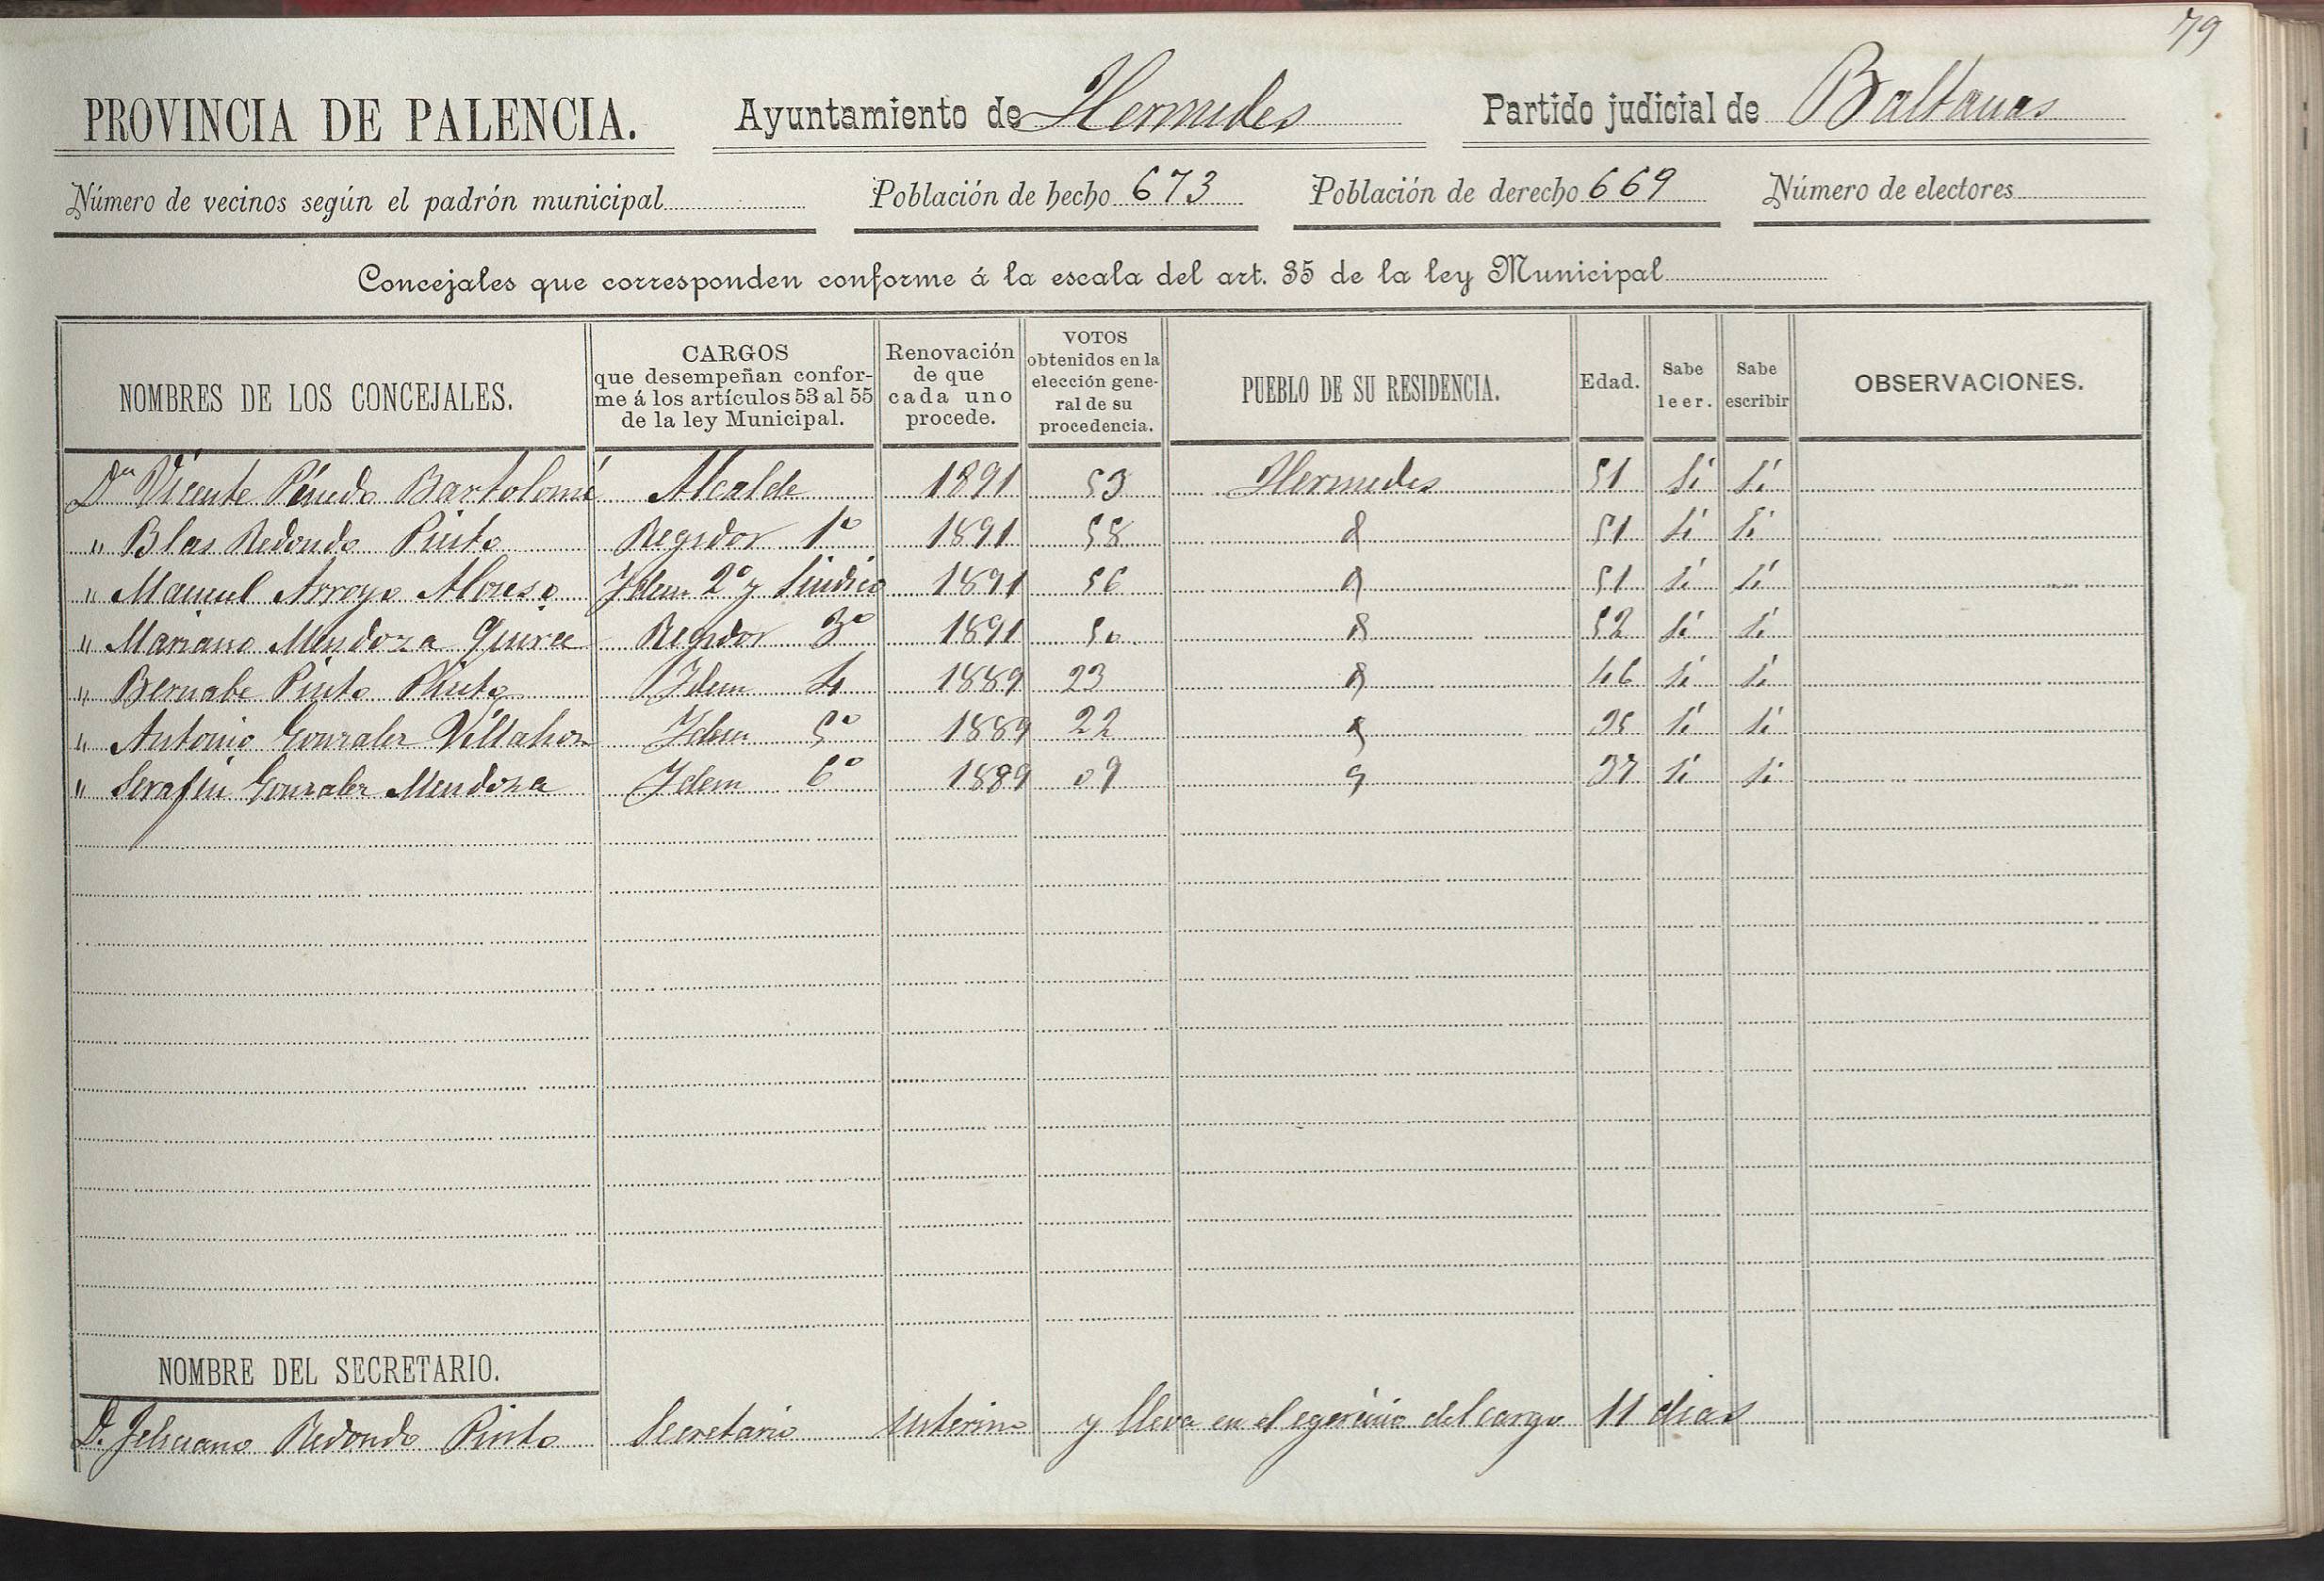 79
PROVINCIA DE PALENCIA. Ayuntamiento de Hermedes Partido judicial de Baltanas
Número de vecinos según el padrón municipal Población de hecho 673 Población de derecho 669 Número de electores
Concejales que corresponden conforme á la escala del art. 35 de la ley Municipal
NOMBRES DE LOS CONCEJALES. CARGOS que desempeñan conforme á los artículos 53 al 55 de la ley Municipal. Renovación de que cada uno procede. VOTOS obtenidos en la elección general de su procedencia. PUEBLO DE SU RESIDENCIA. Edad. Sabe leer. Sabe escribir OBSERVACIONES.
Dn Vicente Pinedo Bartolomé Alcalde 1891 53 Hermedes 51 Si Si
" Blas Redondo Pinto Regidor 1º 1891 58 51 Si Si
" Manuel Arroyo Alonso Idem 2º y Sindico 1891 56 51 Si Si
" Mariano Mendoza Quirce Regidor 3º 1891 50 52 Si Si
" Bernabe Pinto Pinto Idem 4 1889 23 46 Si Si
" Antonio Gonzalez Villahoz Idem 5º 1889 22 Si Si
" Serafin Gonzalez Mendoza Idem 6º 1889 09 37 Si Si
NOMBRE DEL SECRETARIO.
D. Feliciano Redondo Pinto Secretario interino y lleva en el egercicio del cargo 11 dias